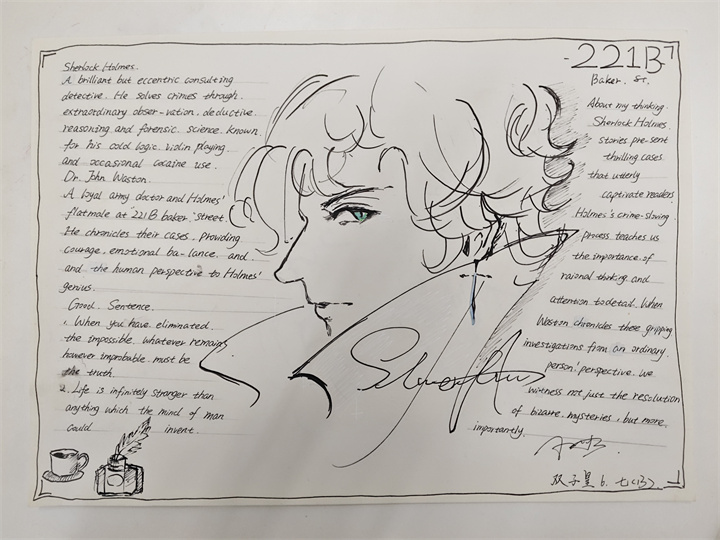 Sherlock Holmes.
A brilliant but eccentric consulting
detective. He solves crimes through.
extraordinary obser-vation, deductive
reasoning and forensic science. known
for his cold logic. violin playing
and occasional cocaine use.
Dr. John Waston.
A loyal army doctor and Holmes'
flatmate at 221B baker street.
He chronicles their cases, providing
courage, emotional ba-lance, and
and the human perspective to Holmes'
genius.
Good Sentence.
1. When you have eliminated.
the impossible whatever remains
however improbable must be
the truth.
2. Life is infinitely stranger than
anything which the mind of man
could invent.
221B
Baker. St.
About my thinking.
Sherlock Holmes
stories pre-sent
thrilling cases
that utterly
captivate readers.
Holmes's crime-sloving
process teaches us
the importance of
raional thinking and
attention to detail. When
Waston chronicles these gripping
investigations from an ordinary
person' perspective. we
witness not just the resolution
of bizarre mysteries, but more
importantly.
双子星 6. 七(13)